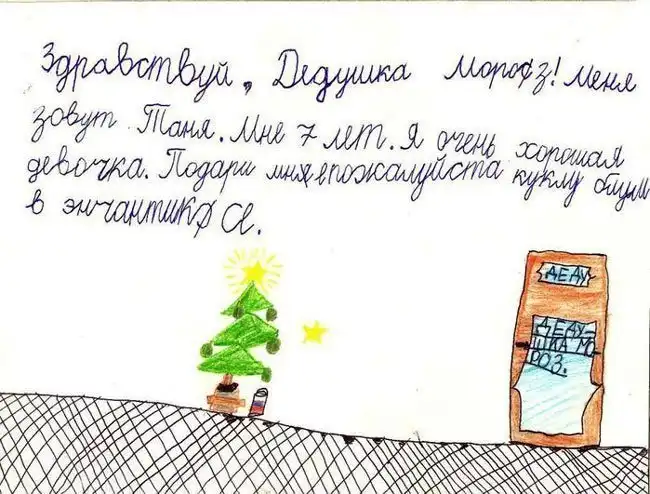 Здравствуй, Дедушка Мороз! Меня
зовут Таня. Мне 7 лет. Я очень хорошая
девочка. Подари мне пожалуйста куклу
в энчантик
ДЕДУ
ДЕДУ-
ШКА МО
РОЗ.